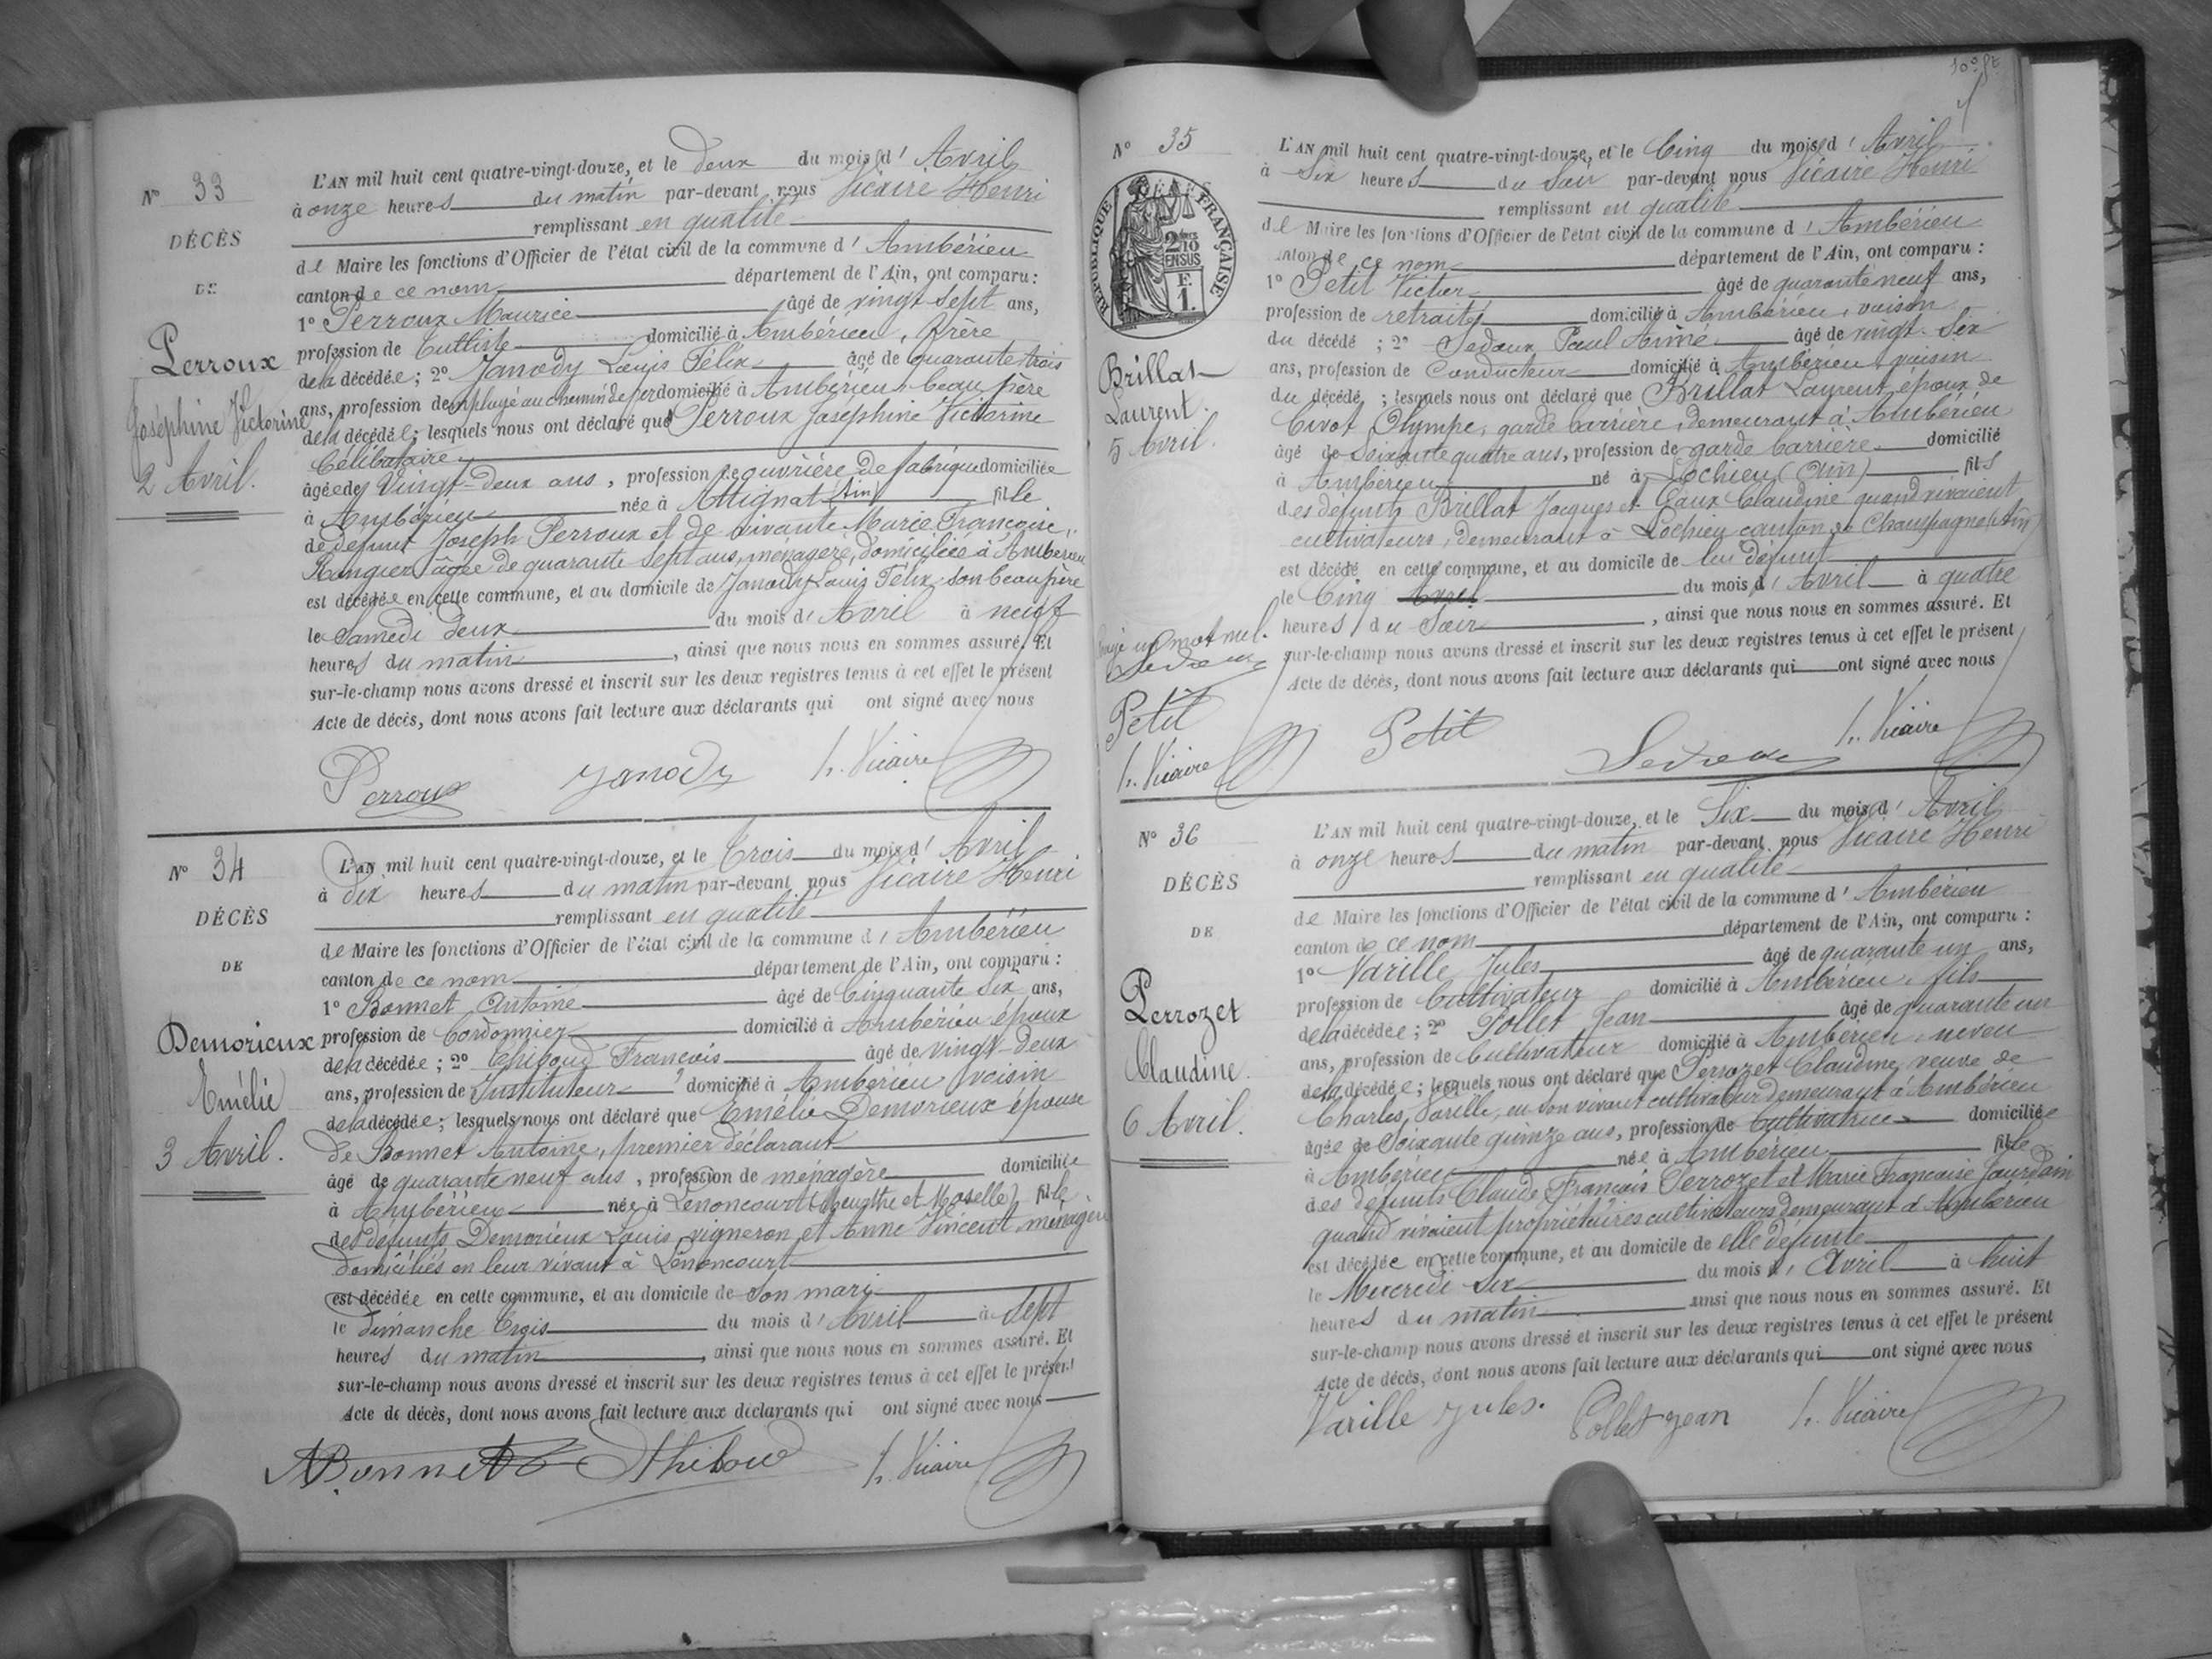 N° 33
DÉCÈS
DE
Perroux
Joséphine Victorine
2 Avril.
L'AN mil huit cent quatre-vingt-douze, et le deux du mois d' Avril
à onze heures du matin par-devant nous Vicaire Henri
remplissant en qualité
de Maire les fonctions d'Officier de l'état civil de la commune d' Ambérieu
canton de ce nom département de l'Ain, ont comparu :
1° Perroux Maurice âgé de vingt sept ans,
profession de domicilié à Ambérieu, frère
de la décédée ; 2° Janody Louis Félix âgé de quarante trois
ans, profession d'employé au chemin de fer domicilié à Ambérieu, beau père
de la décédée ; lesquels nous ont déclaré que Perroux Joséphine Victorine
Célibataire
âgée de Vingt-deux ans, profession de ouvrière de fabrique domiciliée
à Ambérieu née à Attignat (Ain) fille
de défunt Joseph Perroux et de vivante Marie Françoise
âgée de quarante sept ans, ménagère, domiciliée à Ambérieu
est décédée en cette commune, et au domicile de Janody Louis Félix son beau père
le Samedi deux du mois d' Avril à neuf
heures du matin, ainsi que nous nous en sommes assuré. Et
sur-le-champ nous avons dressé et inscrit sur les deux registres tenus à cet effet le présent
Acte de décès, dont nous avons fait lecture aux déclarants qui ont signé avec nous
Perroux Janody h. Vicaire
N° 34
DÉCÈS
DE
Demorieux
Emélie
3 Avril.
L'AN mil huit cent quatre-vingt-douze, et le Trois du mois d' Avril
à dix heures du matin par-devant nous Vicaire Henri
remplissant en qualité
de Maire les fonctions d'Officier de l'état civil de la commune d' Ambérieu
canton de ce nom département de l'Ain, ont comparu :
1° Bonnet Antoine âgé de Cinquante Six ans,
profession de Cordonnier domicilié à Ambérieu époux
de la décédée ; 2° Thiboud François âgé de vingt-deux
ans, profession de Instituteur domicilié à Ambérieu voisin
de la décédée ; lesquels nous ont déclaré que Emélie Demorieux épouse
de Bonnet Antoine, premier déclarant
âgé de quarante neuf ans, profession de ménagère domiciliée
à Ambérieu née à Lenoncourt (Meurthe et Moselle) fille
des défunts Demorieux Louis, vigneron et Anne Vincent, ménagère
domiciliés en leur vivant à Lenoncourt
est décédée en cette commune, et au domicile de son mari
le dimanche Trois du mois d' Avril à Sept
heures du matin, ainsi que nous nous en sommes assuré. Et
sur-le-champ nous avons dressé et inscrit sur les deux registres tenus à cet effet le présent
Acte de décès, dont nous avons fait lecture aux déclarants qui ont signé avec nous
ABonnet Thiboud h. Vicaire
N° 35
RÉPUBLIQUE FRANÇAISE
2/10 EN SUS
F.
1.
Brillat
Laurent.
5 Avril.
L'AN mil huit cent quatre-vingt-douze, et le Cinq du mois d' Avril
à Six heures du Soir par-devant nous Vicaire Henri
remplissant en qualité
de Maire les fonctions d'Officier de l'état civil de la commune d' Ambérieu
canton de ce nom département de l'Ain, ont comparu :
1° Petit Victor âgé de quarante neuf ans,
profession de retraité domicilié à Ambérieu, voisin
du décédé ; 2° Paul Aimé âgé de vingt-Six
ans, profession de Conducteur domicilié à Ambérieu, voisin
du décédé ; lesquels nous ont déclaré que Brillat Laurent, époux de
Civot Olympe, garde barrière, demeurant à Ambérieu
âgé de Soixante quatre ans, profession de garde barrière domicilié
à Ambérieu né à Lochieu (Ain) fils
des défunts Brillat Jacques et Claudine quand vivaient
cultivateurs, demeurant à Lochieu canton de Champagne (Ain)
est décédé en cette commune, et au domicile de lui défunt
le Cinq du mois d' Avril à quatre
heures du Soir, ainsi que nous nous en sommes assuré. Et
sur-le-champ nous avons dressé et inscrit sur les deux registres tenus à cet effet le présent
Acte de décès, dont nous avons fait lecture aux déclarants qui ont signé avec nous
un mot nul.
Petit
h. Vicaire
Petit h. Vicaire
N° 36
DÉCÈS
DE
Perrozet
Claudine.
6 Avril.
L'AN mil huit cent quatre-vingt-douze, et le Six du mois d' Avril
à onze heures du matin par-devant nous Vicaire Henri
remplissant en qualité
de Maire les fonctions d'Officier de l'état civil de la commune d' Ambérieu
canton de ce nom département de l'Ain, ont comparu :
1° Varille Jules âgé de quarante un ans,
profession de Cultivateur domicilié à Ambérieu, fils
de la décédée ; 2° Pollet Jean âgé de quarante un
ans, profession de Cultivateur domicilié à Ambérieu, neveu
de la décédée ; lesquels nous ont déclaré que Perrozet Claudine, veuve de
Charles Varille, en son vivant cultivateur demeurant à Ambérieu
âgée de Soixante quinze ans, profession de Cultivatrice domiciliée
à Ambérieu née à Ambérieu fille
des défunts Claude François Perrozet et Marie Françoise Jourdain
quand vivaient propriétaires cultivateurs demeurant à Ambérieu
est décédée en cette commune, et au domicile de elle défunte
le Mercredi Six du mois d' Avril à huit
heures du matin ainsi que nous nous en sommes assuré. Et
sur-le-champ nous avons dressé et inscrit sur les deux registres tenus à cet effet le présent
Acte de décès, dont nous avons fait lecture aux déclarants qui ont signé avec nous
Varille Jules. Pollet Jean h. Vicaire